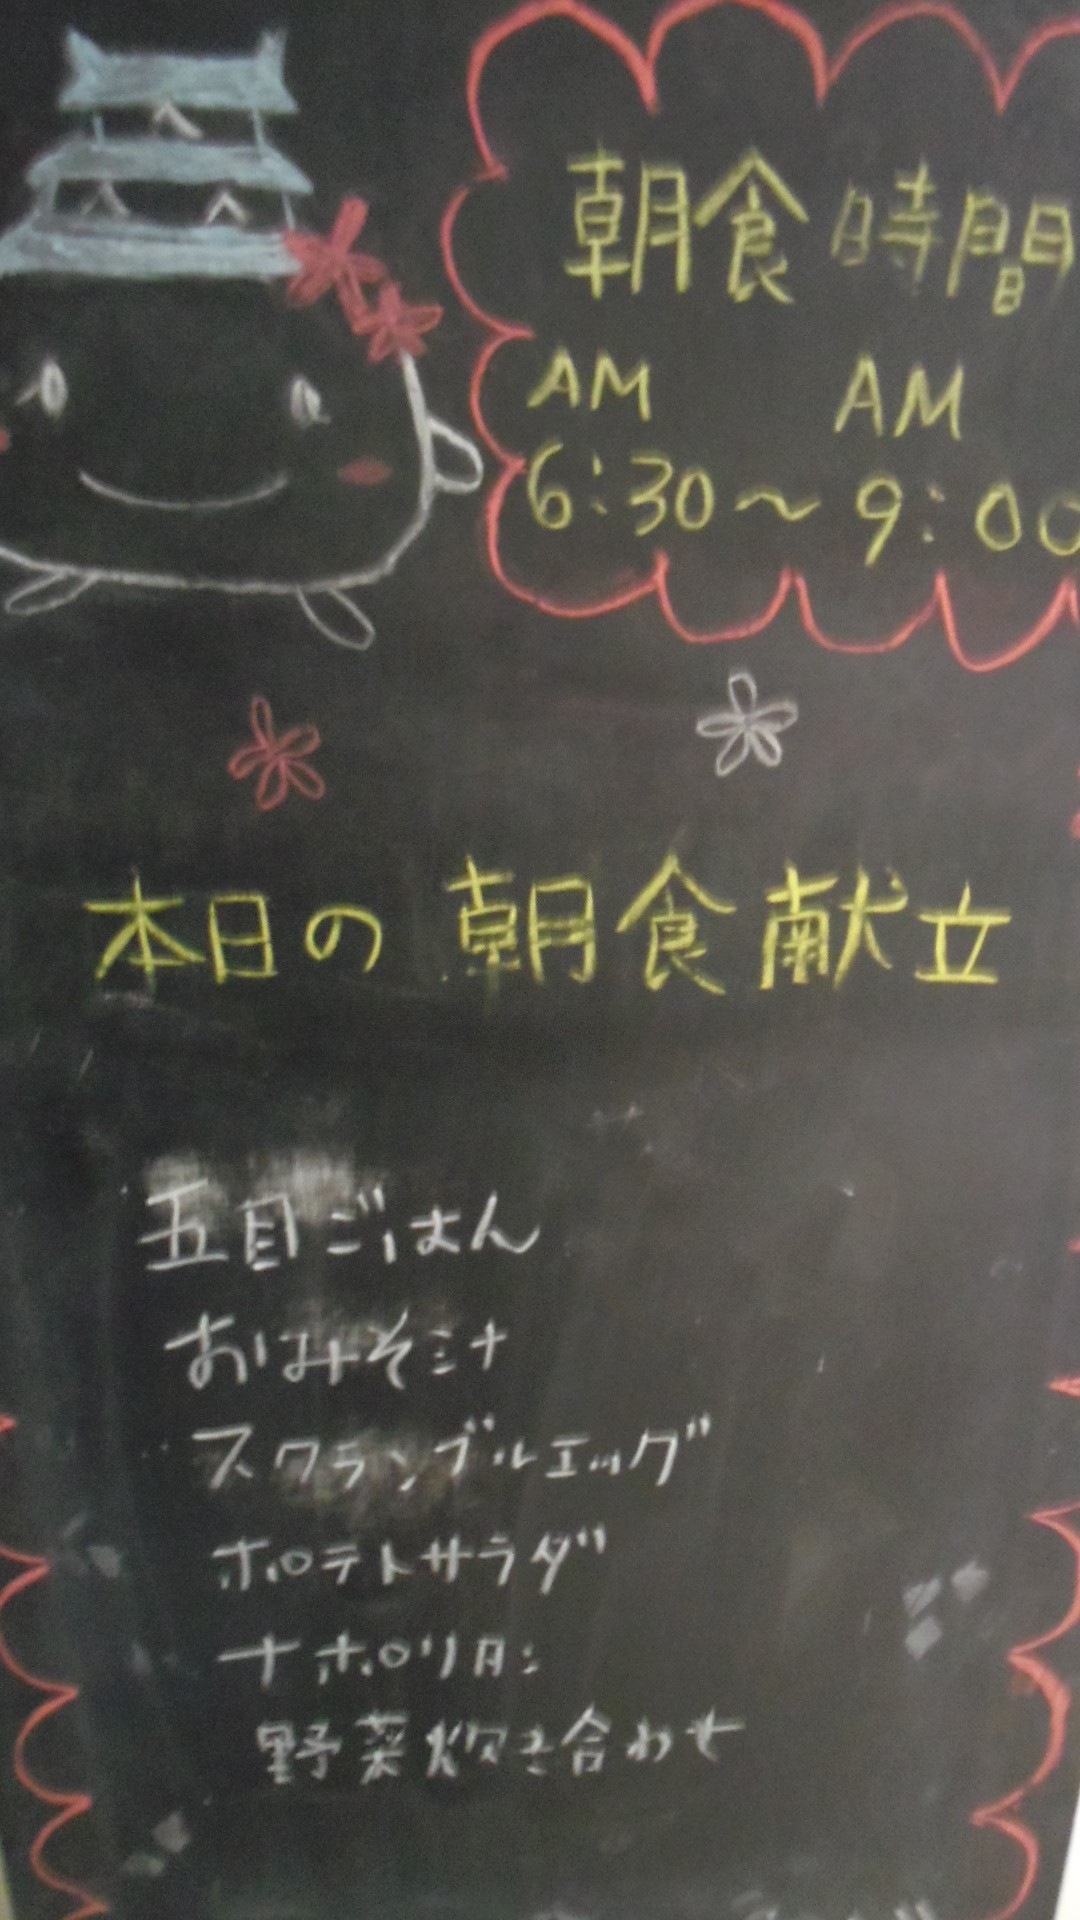 朝食時間
AM AM
6:30～9:00
本日の朝食献立
五目ごはん
おはみそ汁
スクランブルエッグ
ポテトサラダ
ナポリタン
野菜炊き合わせ